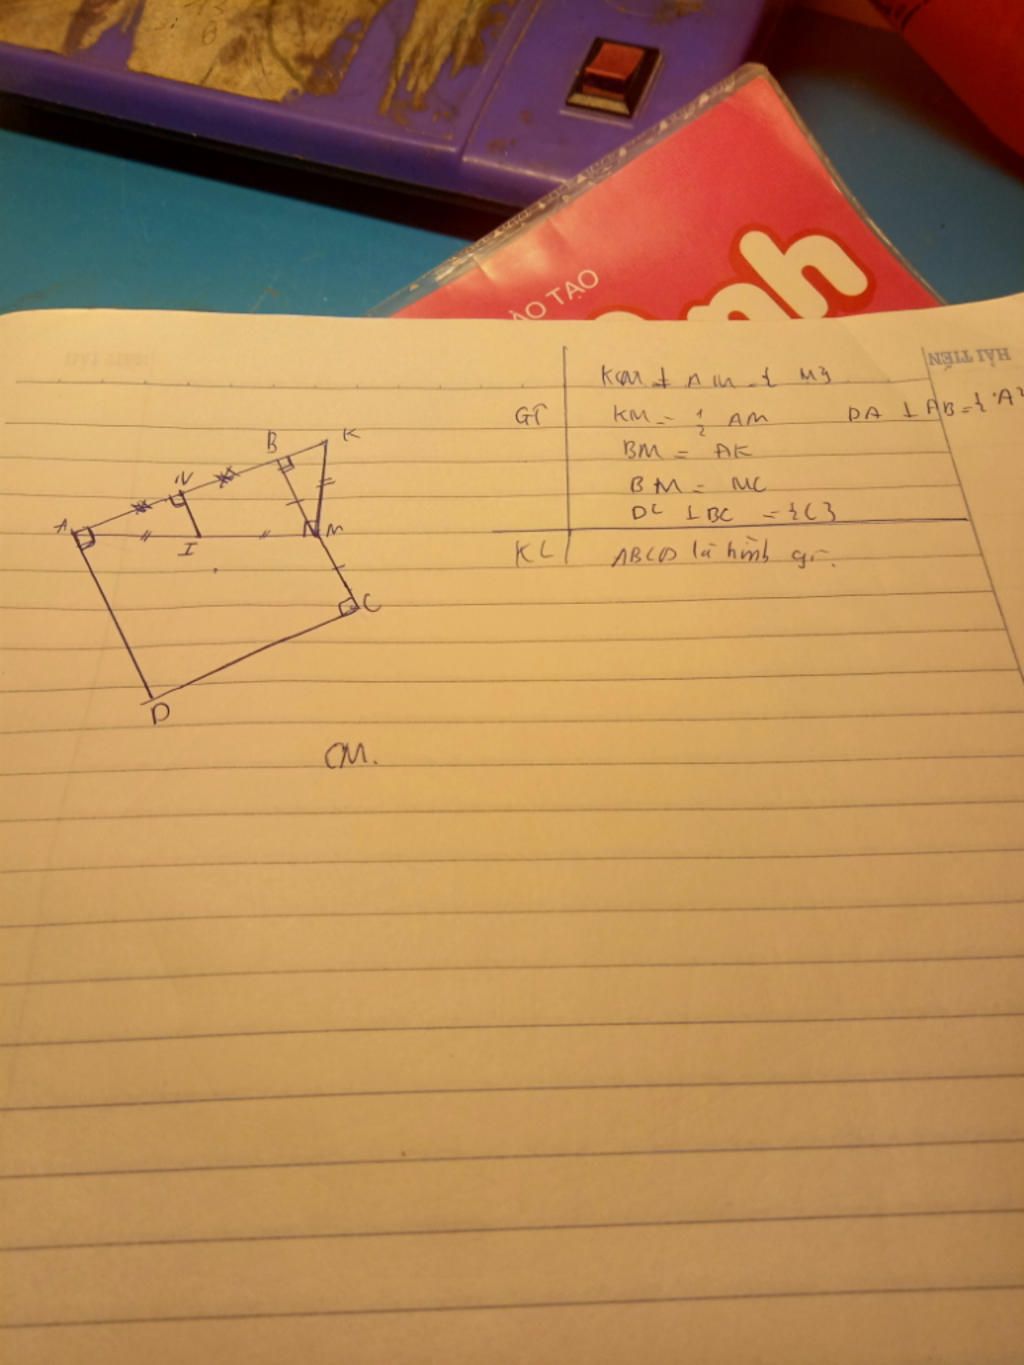 ÀO TẠO
nh
HẢI TIẾN
KM ⊥ AM = { M}
GT
KM = 1/2 AM
DA ⊥ AB = { A}
BM = AK
BM = MC
DC ⊥ BC = {C}
KL
ABCD là hình gì.
B K
N
A
I M
C
D
CM.